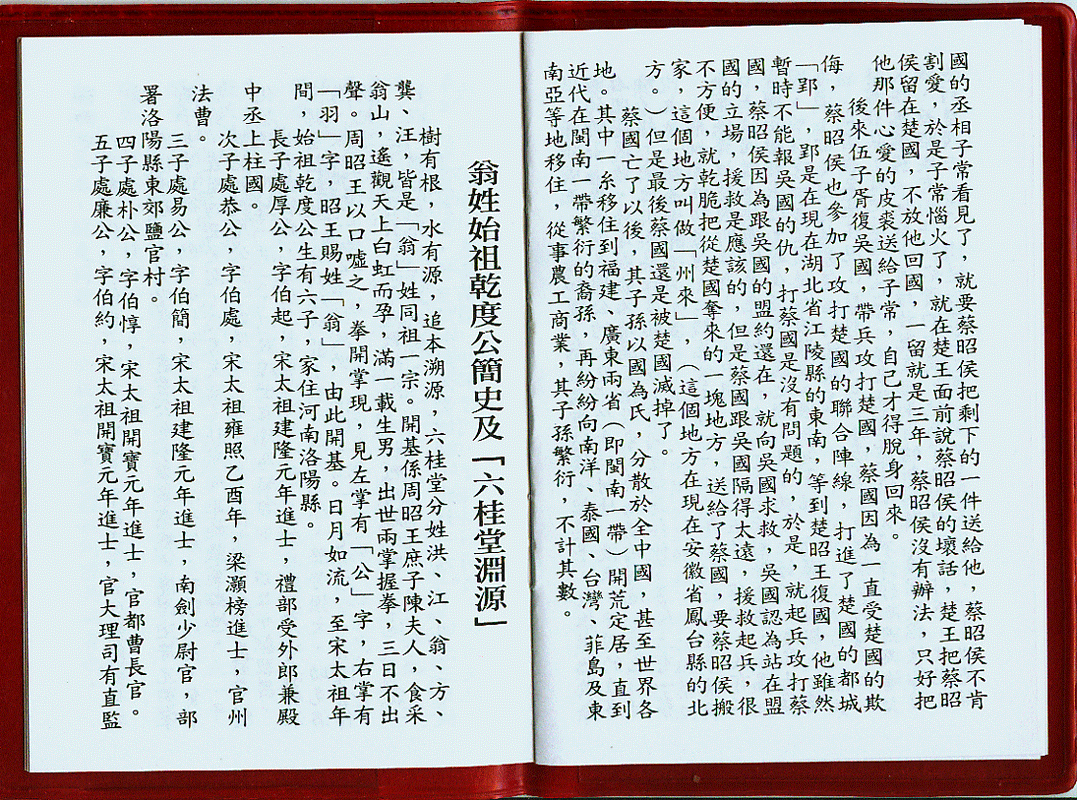 國的丞相子常看見了，就要蔡昭侯把剩下的一件送給他，蔡昭侯不肯
割愛，於是子常惱火了，就在楚王面前說蔡昭侯的壞話，楚王把蔡昭
侯留在楚國，不放他回國，一留就是三年，蔡昭侯沒有辦法，只好把
他那件心愛的皮裘送給子常，自己才得脫身回來。
後來伍子胥復吳國，帶兵攻打楚國，蔡國因為一直受楚國的欺
侮，蔡昭侯也參加了攻打楚國的聯合陣線，打進了楚國的都城
「郢」，郢是在現在湖北省江陵縣的東南，等到楚昭王復國，他雖然
暫時不能報吳國的仇，打蔡國是沒有問題的，於是，就起兵攻打蔡
國，蔡昭侯因為跟吳國的盟約還在，就向吳國求救，吳國認為站在盟
國的立場，援救是應該的，但是蔡國跟吳國隔得太遠，援救起兵，很
不方便，就乾脆把從楚國奪來的一塊地方，送給了蔡國，要蔡昭侯搬
家，這個地方叫做「州來」，（這個地方在現在安徽省鳳台縣的北
方。）但是最後蔡國還是被楚國滅掉了。
蔡國亡了以後，其子孫以國為氏，分散於全中國，甚至世界各
地。其中一糸移住到福建、廣東兩省（即閩南一帶）開荒定居，直到
近代在閩南一帶繁衍的裔孫，再紛紛向南洋、泰國、台灣、菲島及東
南亞等地移住，從事農工商業，其子孫繁衍，不計其數。
翁姓始祖乾度公簡史及「六桂堂淵源」
樹有根，水有源，追本溯源，六桂堂分姓洪、江、翁、方、
龔、汪，皆是「翁」姓同祖一宗。開基係周昭王庶子陳夫人，食采
翁山，遙觀天上白虹而孕，滿一載生男，出世兩掌握拳，三日不出
聲。周昭王以口噓之，拳開掌現，見左掌有「公」字，右掌有
「羽」字，昭王賜姓「翁」，由此開基。日月如流，至宋太祖年
間，始祖乾度公生有六子，家住河南洛陽縣。
長子處厚公，字伯起，宋太祖建隆元年進士，禮部受外郎兼殿
中丞上柱國。
次子處恭公，字伯處，宋太祖雍照乙酉年，梁灝榜進士，官州
法曹。
三子處易公，字伯簡，宋太祖建隆元年進士，南劍少尉官，部
署洛陽縣東郊鹽官村。
四子處朴公，字伯惇，宋太祖開寶元年進士，官都曹長官。
五子處廉公，字伯約，宋太祖開寶元年進士，官大理司有直監